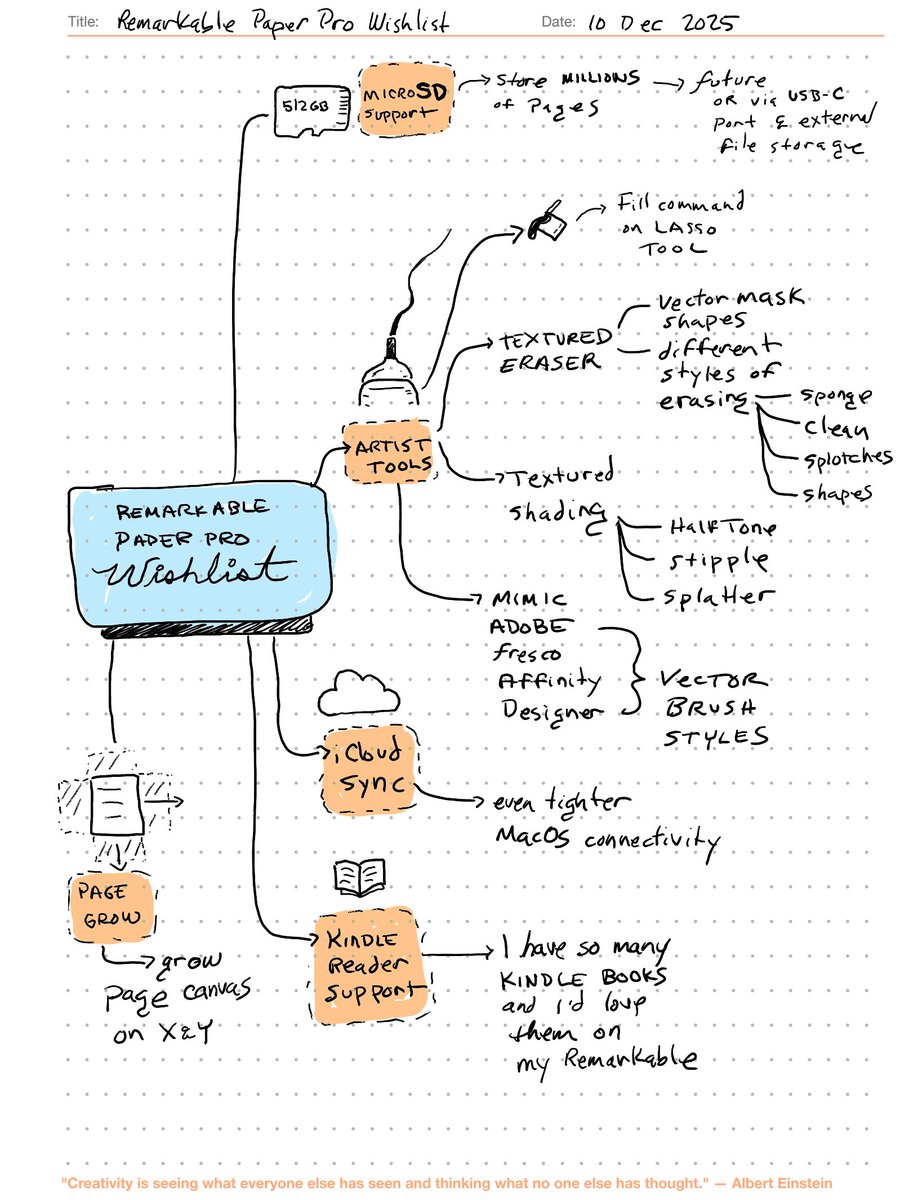 Title: Remarkable Paper Pro Wishlist
Date: 10 Dec 2025
512GB
MICROSD
Support
Store MILLIONS
of Pages
future
OR via USB-C
Port & external
File storage
Fill command
on LASSO
TOOL
TEXTURED
ERASER
Vector mask
shapes
different
styles of
erasing
sponge
clean
splotches
shapes
ARTIST
TOOLS
Textured
shading
HalfTone
stipple
splatter
REMARKABLE
PAPER PRO
Wishlist
MIMIC
ADOBE
fresco
Affinity
Designer
VECTOR
BRUSH
STYLES
iCloud
Sync
even tighter
MacOS connectivity
PAGE
GROW
grow
page canvas
on X&Y
KINDLE
Reader
Support
I have so many
KINDLE BOOKS
and I'd love
them on
my Remarkable
"Creativity is seeing what everyone else has seen and thinking what no one else has thought." — Albert Einstein